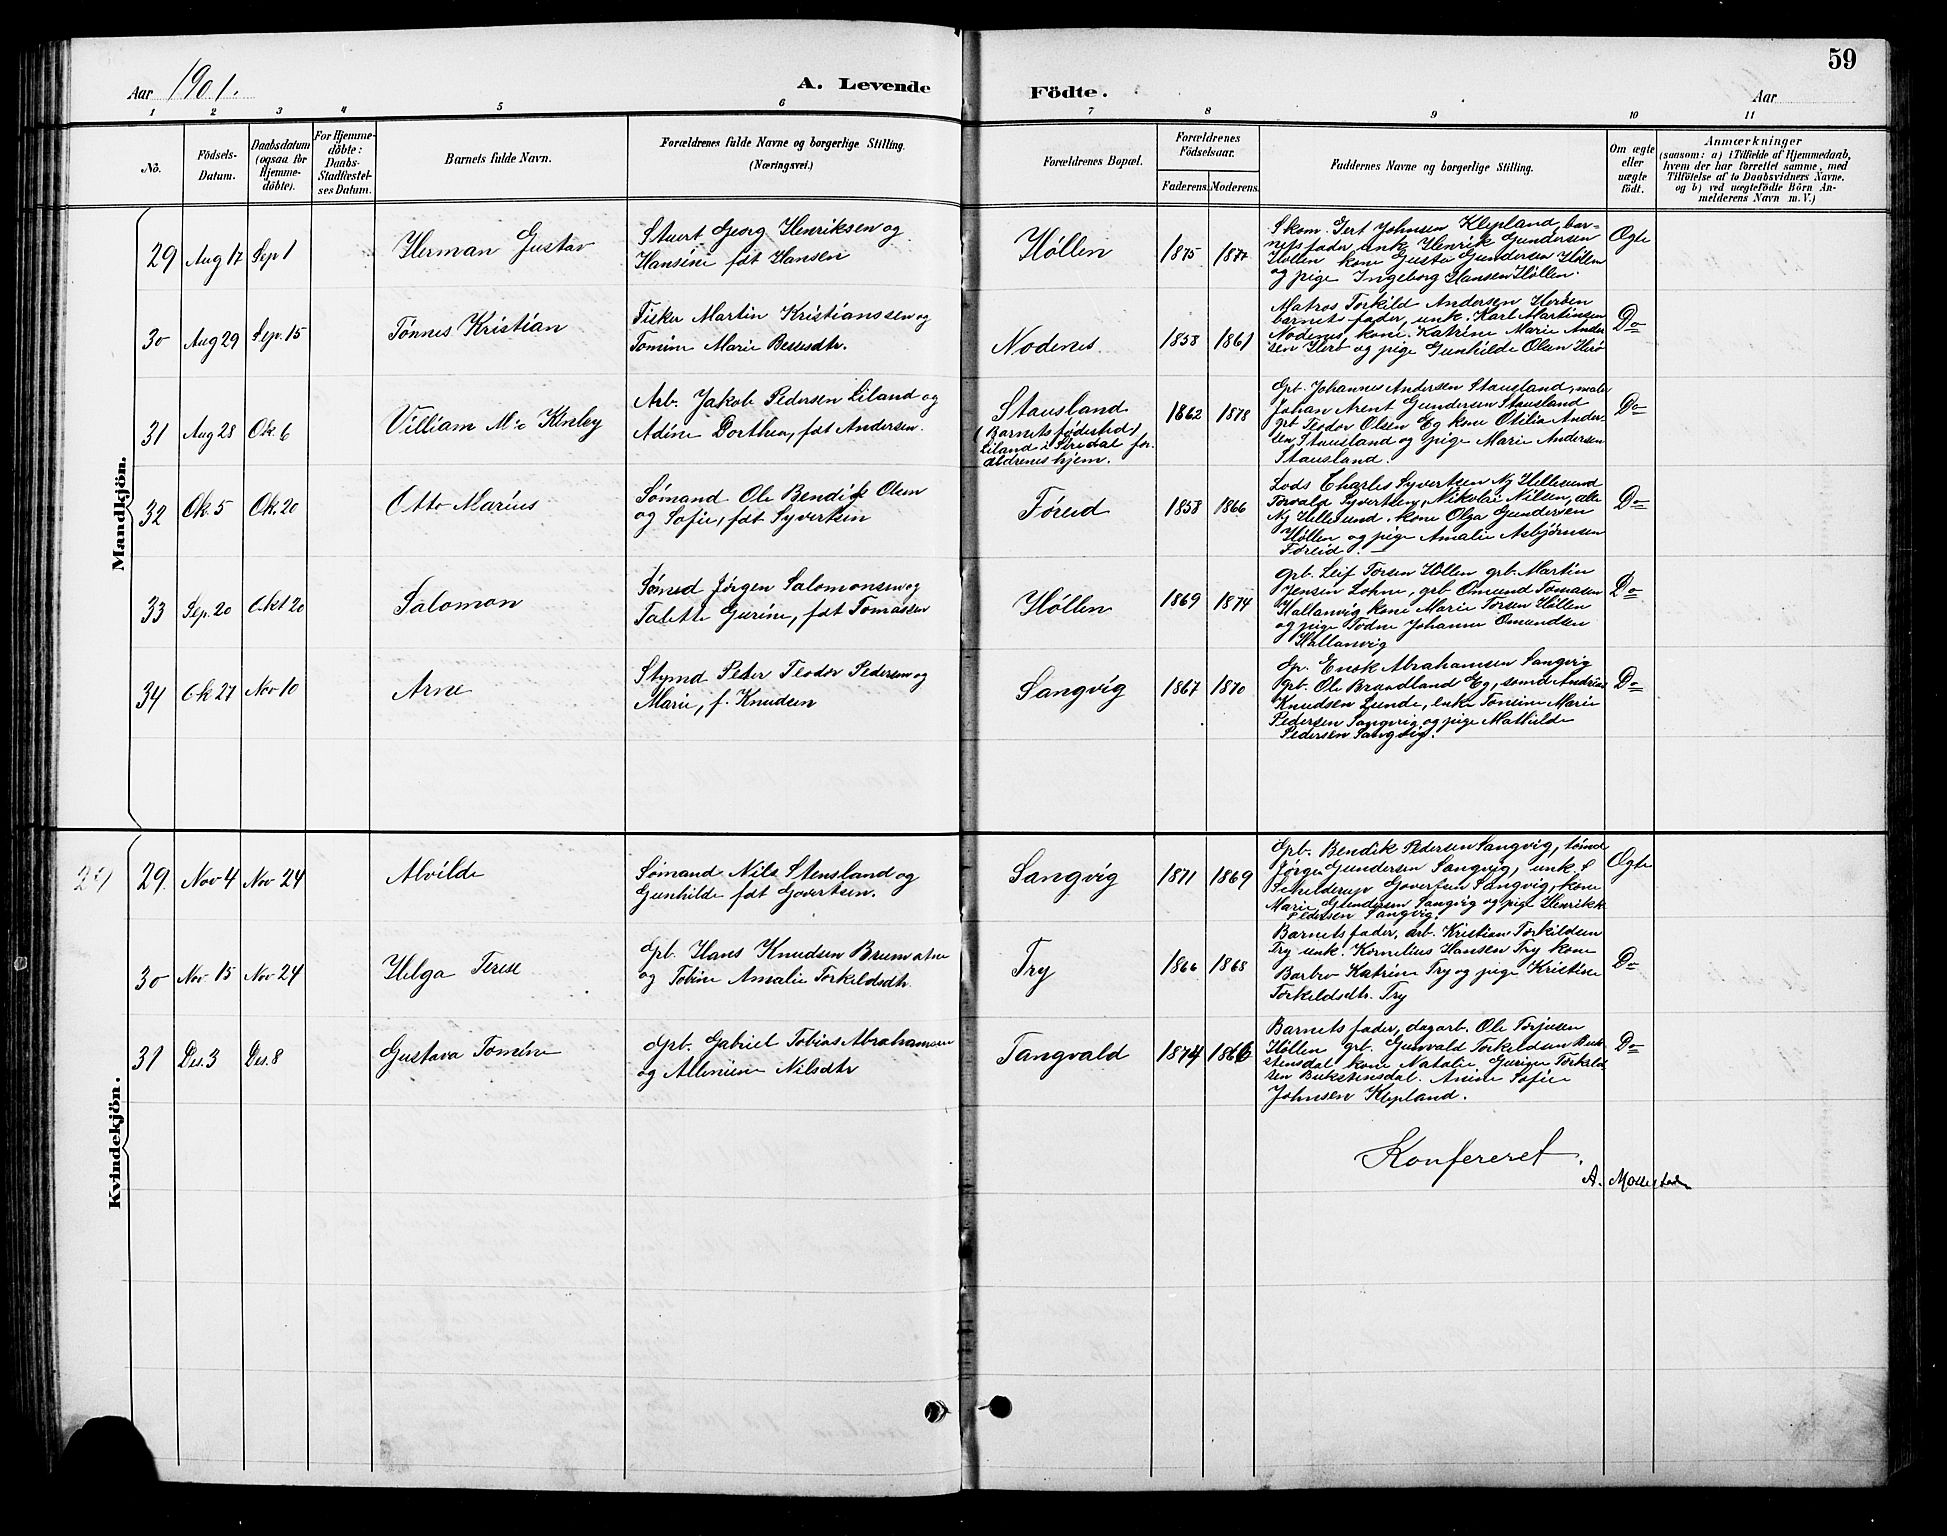 59
Aar 1901.
A. Levende Födte.
Aar
1 2 3 4 5 6 7 8 9 10 11
No.
Födsels-
Datum.
Daabsdatum
(ogsaa for
Hjemme-
döbte).
For Hjemme-
döbte:
Daabs-
Stadfæstel-
ses Datum.
Barnets fulde Navn.
Forældrenes fulde Navne og borgerlige Stilling.
(Næringsvei.)
Forældrenes Bopæl.
Forældrenes
Födselsaar.
Faderens. Moderens.
Faddernes Navne og borgerlige Stilling.
Om ægte
eller
uægte
födt.
Anmærkninger
(saasom: a) i Tilfælde af Hjemmedaab,
hvem der har forrettet samme, med
Tilföielse af to Daabsvidners Navne.
og b) ved uægtefödte Börn An-
melderens Navn m. V.)
Mandkjön.
29 Aug 17 Sep 1
Herman Gustav
Stuert Georg Henriksen og
Hansine fdt Hansen
Høllen
1875 1877
Skom. Gert Johnsen Klepland, bar-
nets fader, unk Henrik Gundersen
Høllen kone Gusta Gundersen Høllen
og pige Ingeborg Hansen Høllen.
Ægte
30 Aug 29 Sep. 15
Tönnes Kristian
Fisker Martin Kristianssen og
Tomine Marie Bessesdtr.
Nodenes
1858 1861
Matros Torkild Andersen Herøen
barnets fader, unk. Karl Martinsen
Nodenes, kone Katrine Marie Ander
sen Herø og pige Gunhilde Olsen Herø
Do
31 Aug 28 Ok. 6
Villiam Mc Kinley
Arb. Jakob Pedersen Liland og
Adine Dorthea, fdt Andersen.
Stausland
(Barnets fødested)
Liland i Siredal for-
ældrenes hjem.
1862 1878
Gpb. Johannes Andersen Stausland, maler
Johan Arent Gundersen Stausland
grb Teodor Olsen Eg kone Otilia Ander-
sen Stausland og pige Marie Andersen
Stausland.
Do
32 Ok. 5 Ok. 20
Otto Marius
Sømand Ole Bendik Olsen
og Sofie, fdt Syvertsen
Føreid
1858 1866
Lods Charles Syvertsen Ny Hellesund
Torvald Syvertsen, Nikolai Nilsen, alle
Ny Hellesund. kone Olga Gundersen
Høllen og pige Amalie Asbjørnsen
Føreid.
Do
33 Sep. 20 Okt 20
Salomon
Sømd Jørgen Salomonsen og
Talette Gurine, fdt Tomassen
Høllen
1869 1874
Gpb. Leif Torsen Høllen grb. Martin
Jensen Lohne, grb Omund Tomasen
Hallanvig kone Marie Torsen Høllen
og pige Todne Johanne Omundsen
Hallanvig
Do
34 Ok 27 Nov 10
Arne
Stymd Peder Teodor Pedersen og
Marie, f. Knudsen
Sangvig
1867 1870
Gp. Enok Abrahamsen Sangvig
Grb. Ole Braadland Eg, sømd Andreas
Knudsen Lunde, enke Tomine Marie
Pedersen Sangvig og pige Mathilde
Pedersen Sangvig.
Do
Kvindekjön.
29. Nov 4 Nov 24
Alvilde
Sømand Nils Stensland og
Gunhilde fdt Govertsen.
Sangvig
1871 1869
Gpb. Bendik Pedersen Sangvig, sømd
Jørgen Gundersen Sangvig, unk. S
Schelderup Govertsen Sangvig, kone
Marie Gundersen Sangvig og pige Henrikke
Pedersen Sangvig.
Ægte
30 Nov 15 Nov 24
Helga Terese
Gpb. Hans Knudsen Brunvatne
og Tobine Amalie Torkeldsdtr.
Try
1866 1868
Barnets fader, arb. Kristian Torkildsen
Try unk. Kornelius Hansen Try kone
Barbro Katrine Try og pige Kristine
Torkeldsdtr. Try
Do
31 Des. 3 Des. 8
Gustava Tomine
Gpb. Gabriel Tobias Abrahamsen
og Allenine Nilsdtr
Tangvald
1874 1866
Barnets fader, dagarb. Ole Terjusen
Høllen grb. Gunvald Torkeldsen Buk-
stensdal kone Natalie Gurine Torkild
sen Bukstensdal. Anine Sofie
Johnsen Klepland.
Do
Konfereret.
A. Mollestad